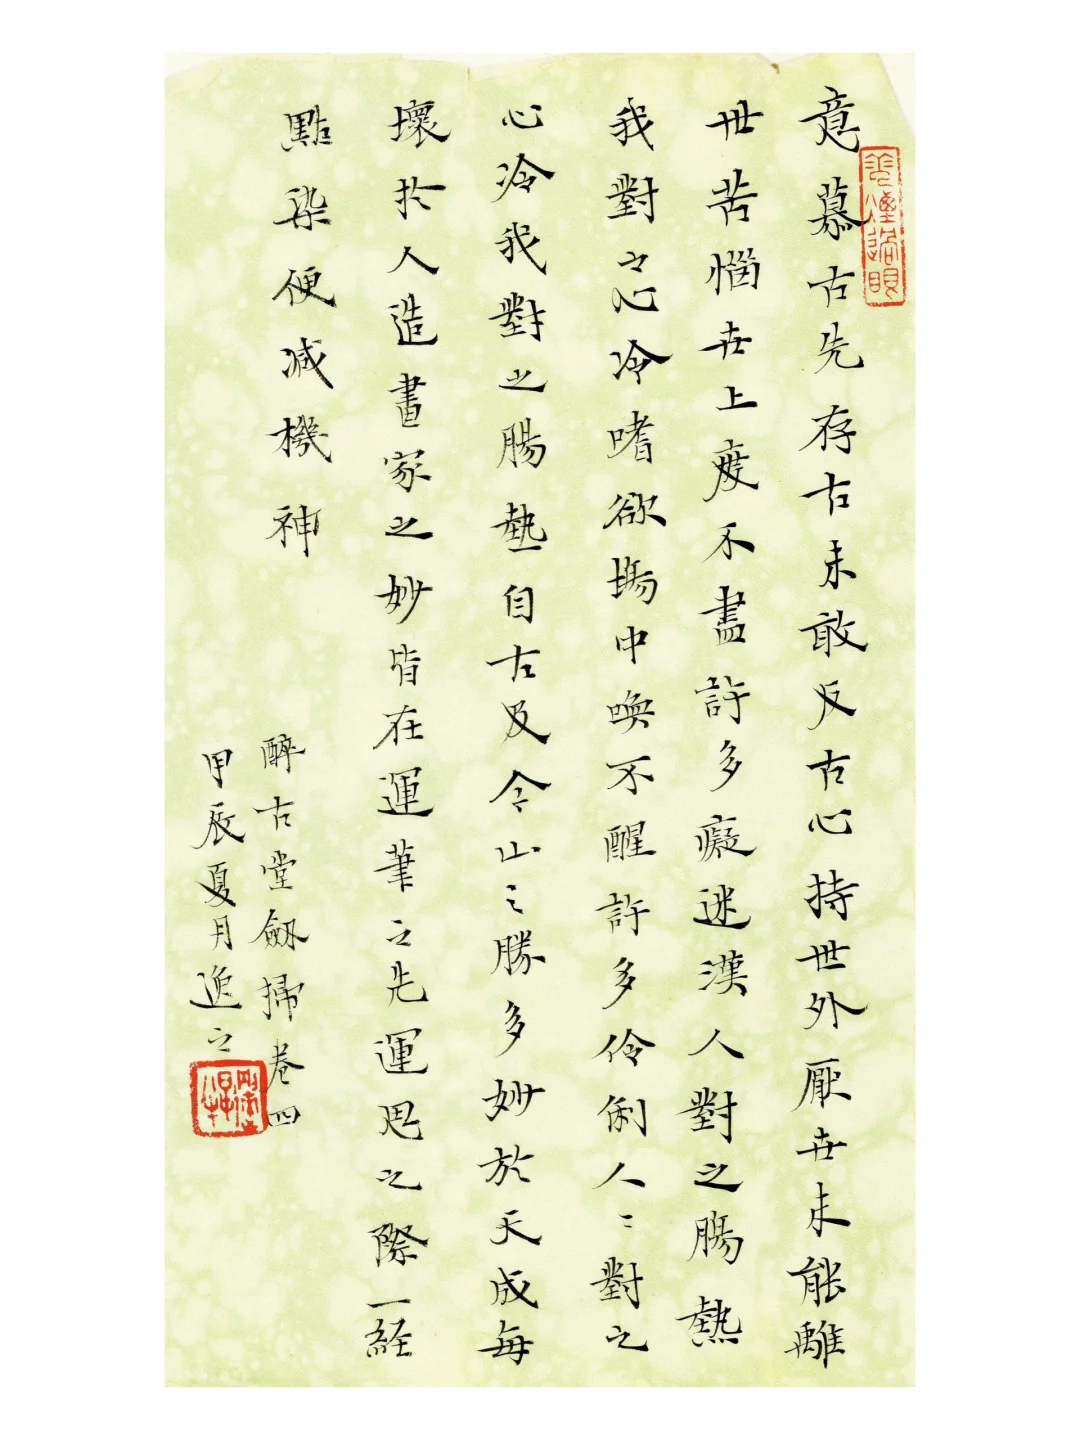 意慕古先存古未敢反古心持世外厭世未能離
世苦惱世上度不盡許多癡迷漢人對之腸熱
我對之心冷嗜欲場中喚不醒許多伶俐人〻對之
心冷我對之腸熱自古及今山之勝多妙於天成每
壞於人造畫家之妙皆在運筆之先運思之際一経
點染便减機神
醉古堂劔掃卷四
甲辰夏月逸之